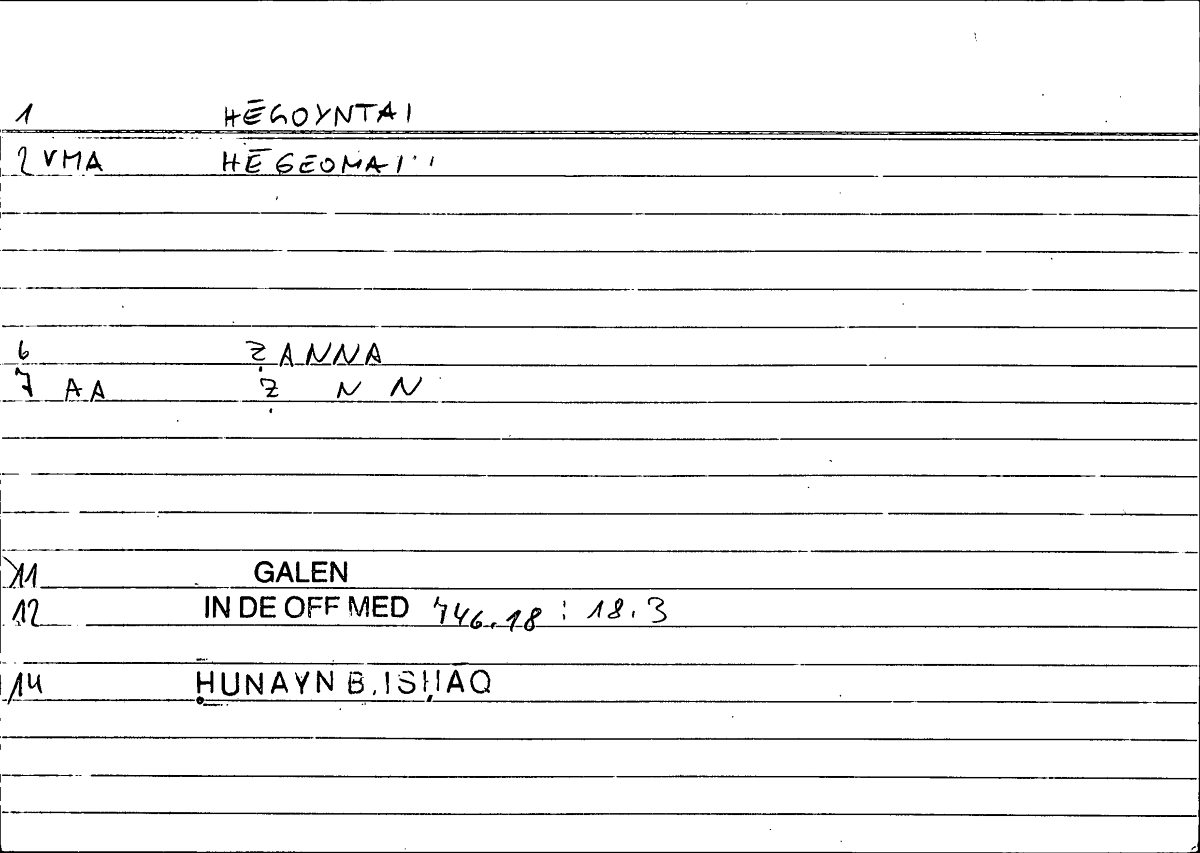 1 HĒGOYNTAI
2 VMA HĒGEOMAI
6 ẒANNA
7 AA Ẓ N N
11 GALEN
12 IN DE OFF MED 746.18 : 18.3
14 ḤUNAYN B. ISḤĀQ